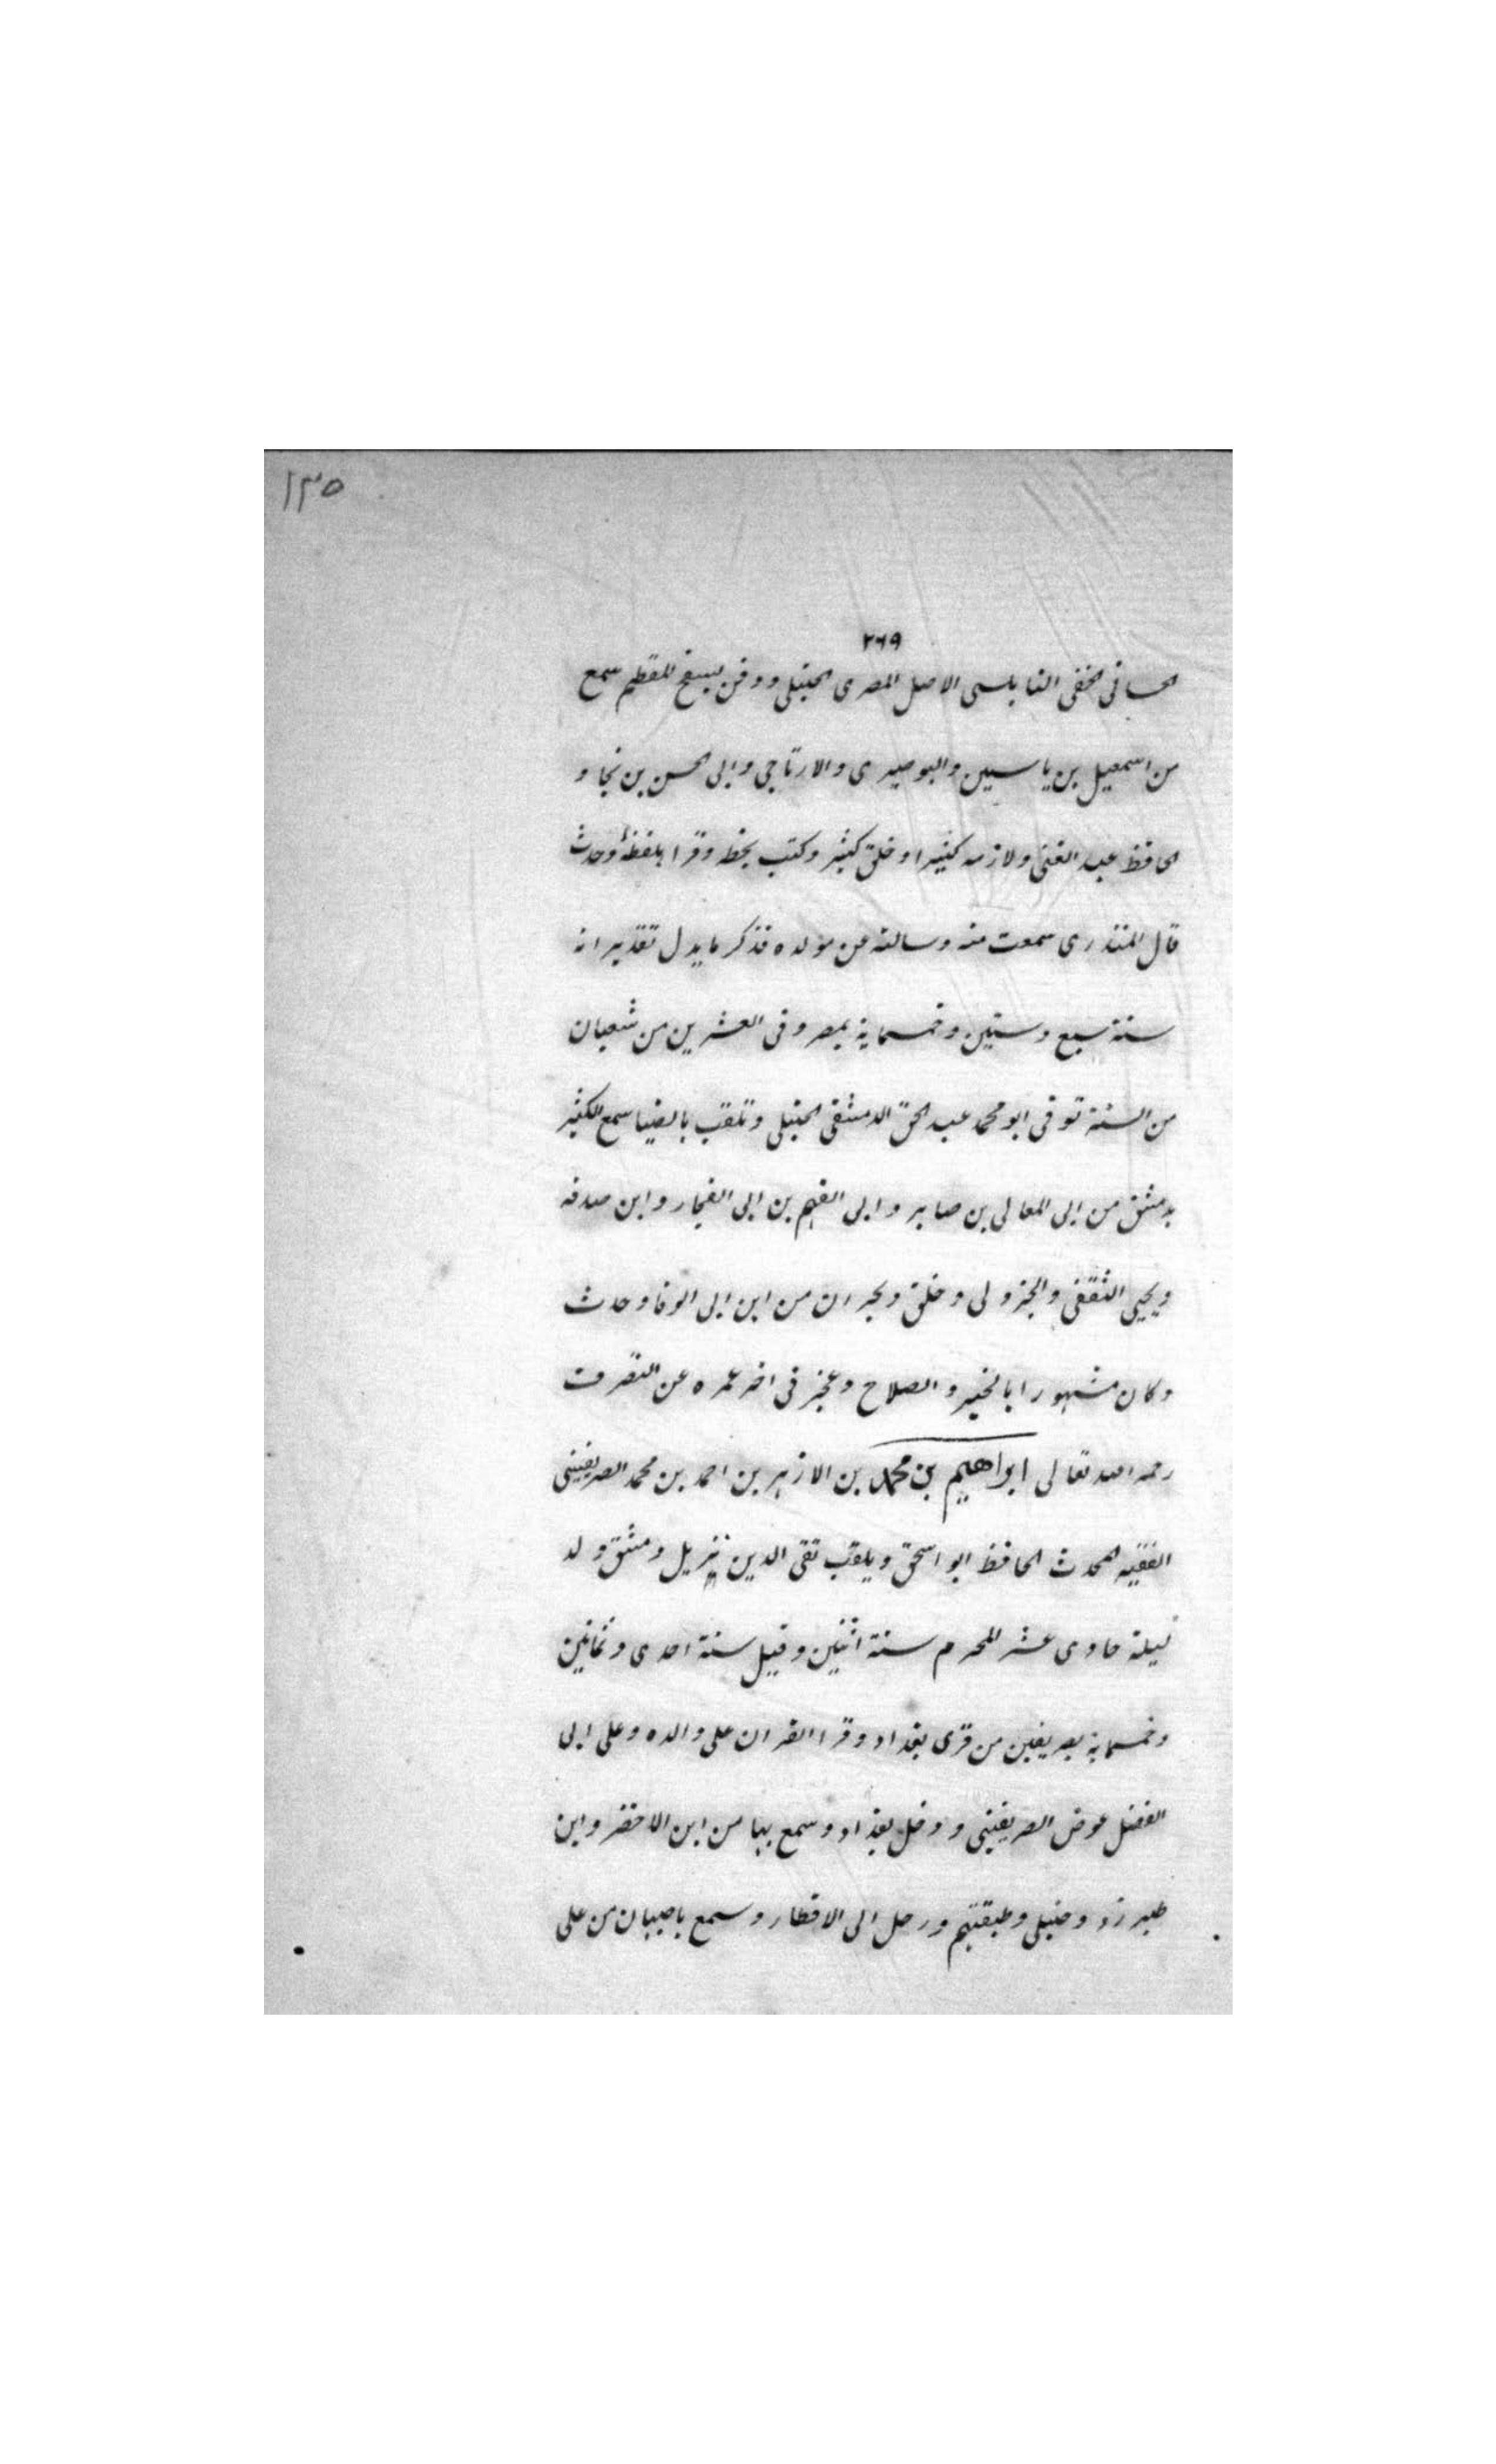 ١٣٥
٢٦٩
الحسانى الحنفى النابلسى الاصل المصرى الحنبلى ودفن بسفح المقطم سمع
من اسمعيل بن ياسين والبوصيرى والارتاجى وابى الحسن بن نجا و
الحافظ عبد الغنى ولازمه كثيرا وخلق كثير وكتب بخطه وقرا بلفظه وحدث
قال المنذرى سمعت منه وسالته عن مولده فذكر ما يدل تقديرا انه
سنة سبع وستين وخمسماية بمصر وفى العشرين من شعبان
من السنة توفى ابو محمد عبد الحق الدمشقى الحنبلى وتلقب بالضيا سمع الكثير
بدمشق من ابى المعالى بن صابر وابى الفهم بن ابى العجار وابن صدقه
ويحيى الثقفى والجزولى وخلق وبحران من ابن ابى الوفا وحدث
وكان مشهورا بالخير والصلاح وعجز فى اخر عمره عن التصرف
رحمه الله تعالى ابراهيم بن محمد بن الازهر بن احمد بن محمد الصريفينى
الفقيه المحدث الحافظ ابو اسحق ويلقب تقى الدين نزيل دمشق ولد
ليلة حادى عشر المحرم سنة اثنين وقيل سنة احدى وثمانين
وخمسماية بصريفين من قرى بغداد وقرا القران على والده وعلى ابى
الفضل عوض الصريفينى ودخل بغداد وسمع بها من ابن الاخضر وابن
طبرزد وحنبلى وطبقتهم ورحل الى الاقطار وسمع باصبهان من على